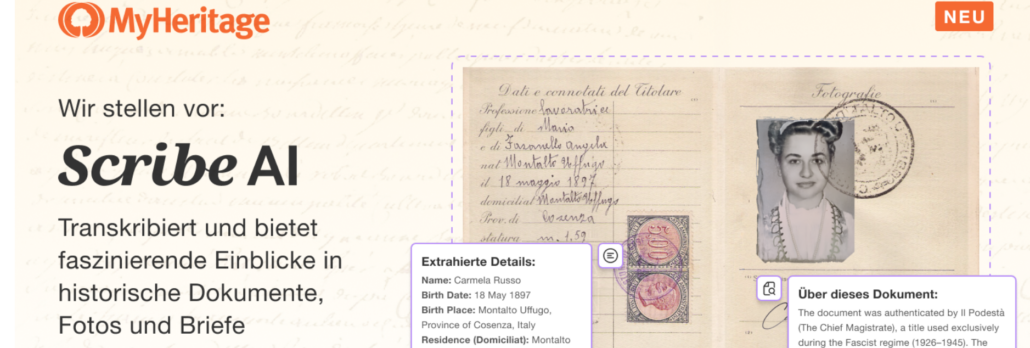 MyHeritage
NEU
Wir stellen vor:
Scribe AI
Transkribiert und bietet
faszinierende Einblicke in
historische Dokumente,
Fotos und Briefe
Dati e connotati del Titolare
Professione lavoratrice
figli di Mario
e di Faranello Angela
nat Montalto Uffugo
il 18 maggio 1897
domiciliat Montalto Uffugo
Prov. di Cosenza
statura m. 1.59
Fotografie
Extrahierte Details:
Name: Carmela Russo
Birth Date: 18 May 1897
Birth Place: Montalto Uffugo,
Province of Cosenza, Italy
Residence (Domiciliat): Montalto
Über dieses Dokument:
The document was authenticated by Il Podestà
(The Chief Magistrate), a title used exclusively
during the Fascist regime (1926–1945). The